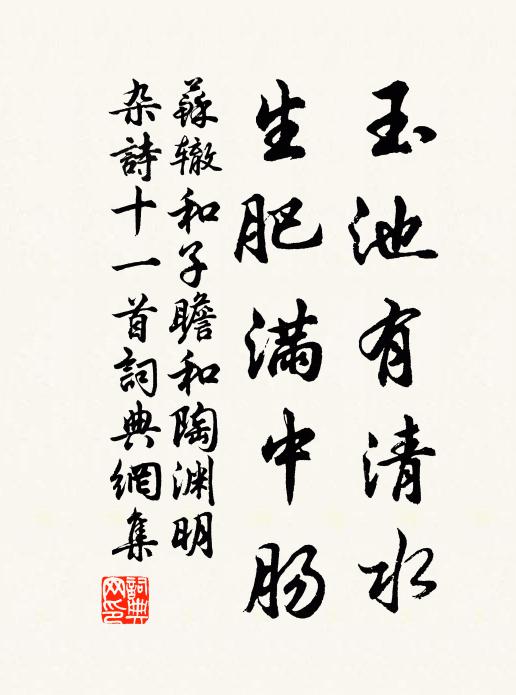 玉池有清水
生肥满中肠
蘇辙和子瞻和陶渊明
杂詩十一首詞典網集
詞典
网印